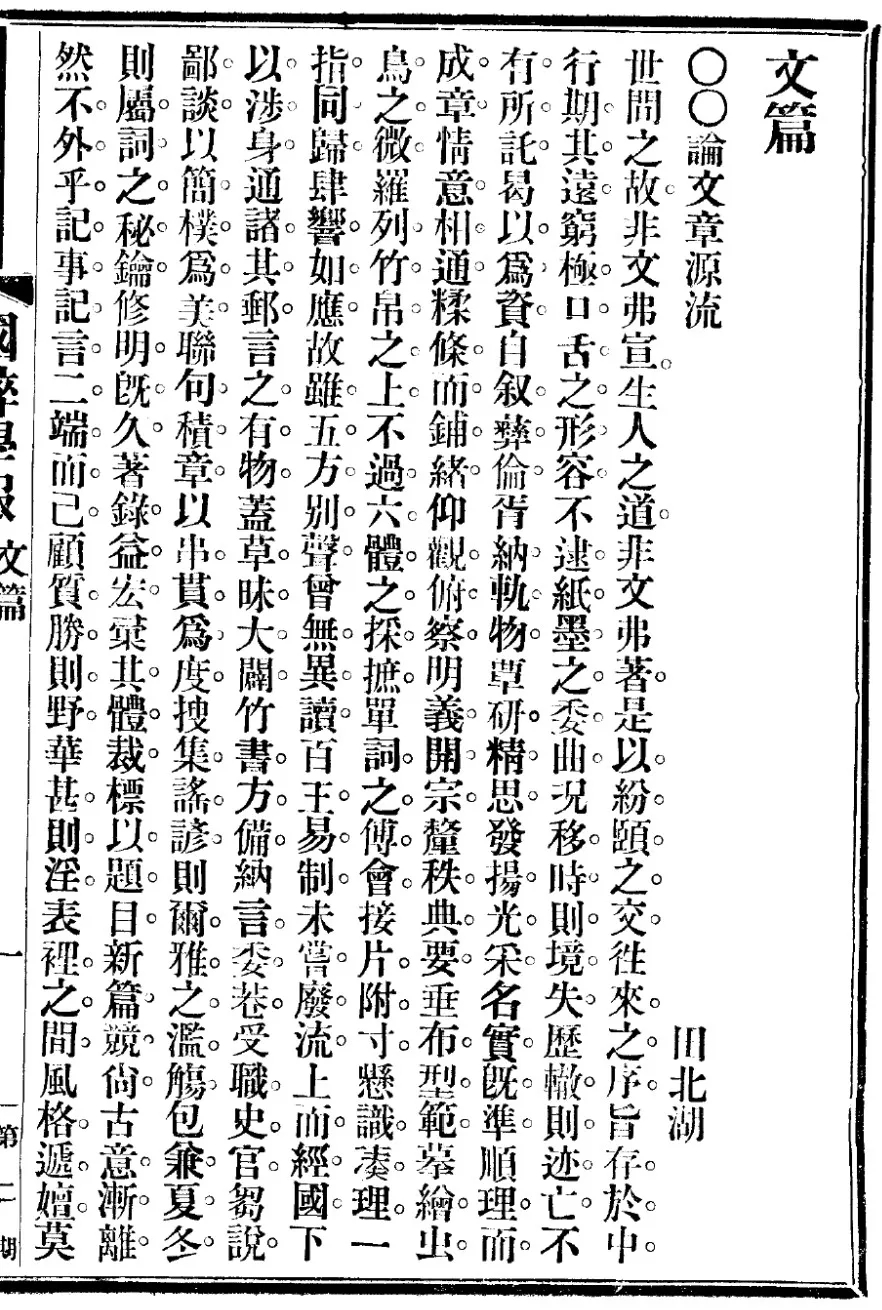 文篇
〇〇論文章源流
田北湖
世間之故非文弗宣生人之道非文弗著是以紛賾之交往來之序旨存於中
行期其遠窮極口舌之形容不逮紙墨之委曲况移時則境失歷轍則迹亡不
有所託曷以爲資自叙彝倫胥納軌物覃研精思發揚光采名實旣準順理而
成章情意相通糅條而鋪緒仰觀俯察明義開宗釐秩典要垂布型範摹繪虫
鳥之微羅列竹帛之上不過六體之採摭單詞之傅會接片附寸懸識凑理一
指同歸肆響如應故雖五方別聲曾無異讀百王易制未嘗廢流上而經國下
以涉身通諸其郵言之有物蓋草昧大闢竹書方備納言委巷受職史官芻說
鄙談以簡樸爲美聯句積章以串貫爲度搜集謠諺則爾雅之濫觴包兼夏冬
則屬詞之秘鑰修明旣久著錄益宏彙其體裁標以題目新篇競尙古意漸離
然不外乎記事記言二端而已顧質勝則野華甚則淫表裡之間風格遞嬗莫
國粹學報 文篇 一 第一期